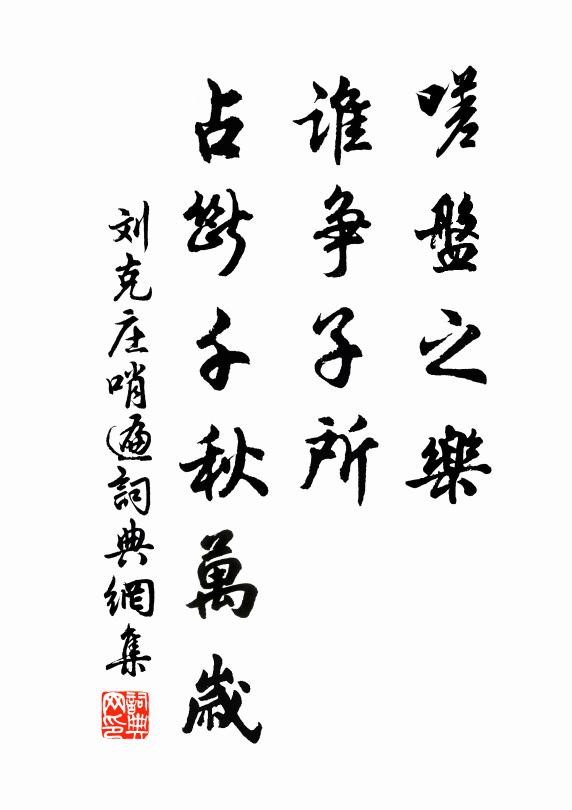 嗟盤之樂
誰爭子所
占斷千秋萬歲
刘克庄哨遍詞典網集
詞典网印